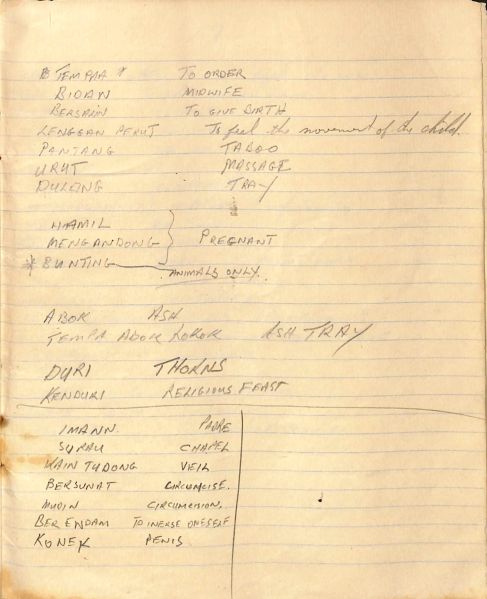 TEMPAA * TO ORDER
BIDAN MIDWIFE
BERSAIN TO GIVE BIRTH
LENGGAN PERUT To feel the movement of the child.
PANTANG TABOO
URUT MASSAGE
DULANG TRAY
HAMIL
MENGANDONG } PREGNANT
* BUNTING ANIMALS ONLY.
ABOK ASH
TEMPA ABOK ROKOK ASH TRAY
DURI THORNS
KENDURI RELIGIOUS FEAST
IMANN PADRE
SURAU CHAPEL
KAIN TUDONG VEIL
BERSUNAT CIRCUMCISE.
MUDIN CIRCUMCISION.
BER ENDAM TO INERSE ONESELF
KONEK PENIS